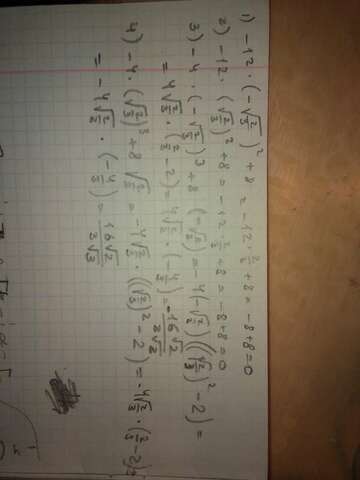 1) -12 · (-√2/3)² + 8 = -12 · 2/3 + 8 = -8+8=0
2) -12 · (√2/3)² + 8 = -12 · 2/3 + 8 = -8+8=0
3) -4 · (-√2/3)³ + 8 (-√2/3) = -4(-√2/3)((√2/3)² - 2) =
= 4√2/3 · (2/3 - 2) = 4√2/3 · (-4/3) = -16√2/3√3
4) -4 · (√2/3)³ + 8 √2/3 = -4√2/3 · ((√2/3)² - 2) = -4√2/3 · (2/3 - 2) =
= -4√2/3 · (-4/3) = 16√2/3√3